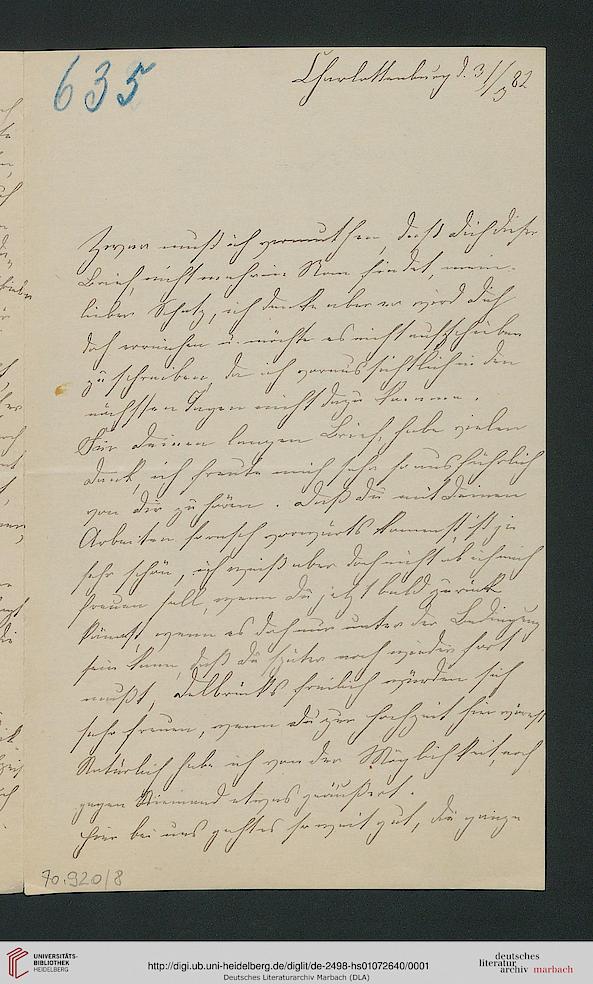 635
Charlottenburg d. 31/3 82
Zwar muß ich vermuthen, daß Dich dieser
Brief nicht mehr in Rom findet, mein
lieber Schatz, ich denke aber er wird Dich
doch erreichen u. möchte es nicht aufschieben
zu schreiben, da ich voraussichtlich in den
nächsten Tagen nicht dazu komme.
Für Deinen langen Brief habe vielen
Dank, ich freute mich sehr so ausführlich
von Dir zu hören. Daß Du mit Deinen
Arbeiten so rasch vorwärts kommst, ist ja
sehr schön, ich weiß aber doch nicht ob ich mich
freuen soll, wenn Du jetzt bald zurück
kämst, wenn es doch nur unter der Bedingung
sein kann, daß Du später noch wieder fort
mußt, Delbrücks freilich würden sich
sehr freuen, wenn Du zur Hochzeit hier wärest.
Natürlich habe ich von der Möglichkeit noch
gegen Niemand etwas geäußert.
Hier bei uns geht es soweit gut, die ganze
70.920/8
UNIVERSITÄTS-
BIBLIOTHEK
HEIDELBERG
http://digi.ub.uni-heidelberg.de/diglit/de-2498-hs01072640/0001
Deutsches Literaturarchiv Marbach (DLA)
deutsches
literatur
archiv marbach